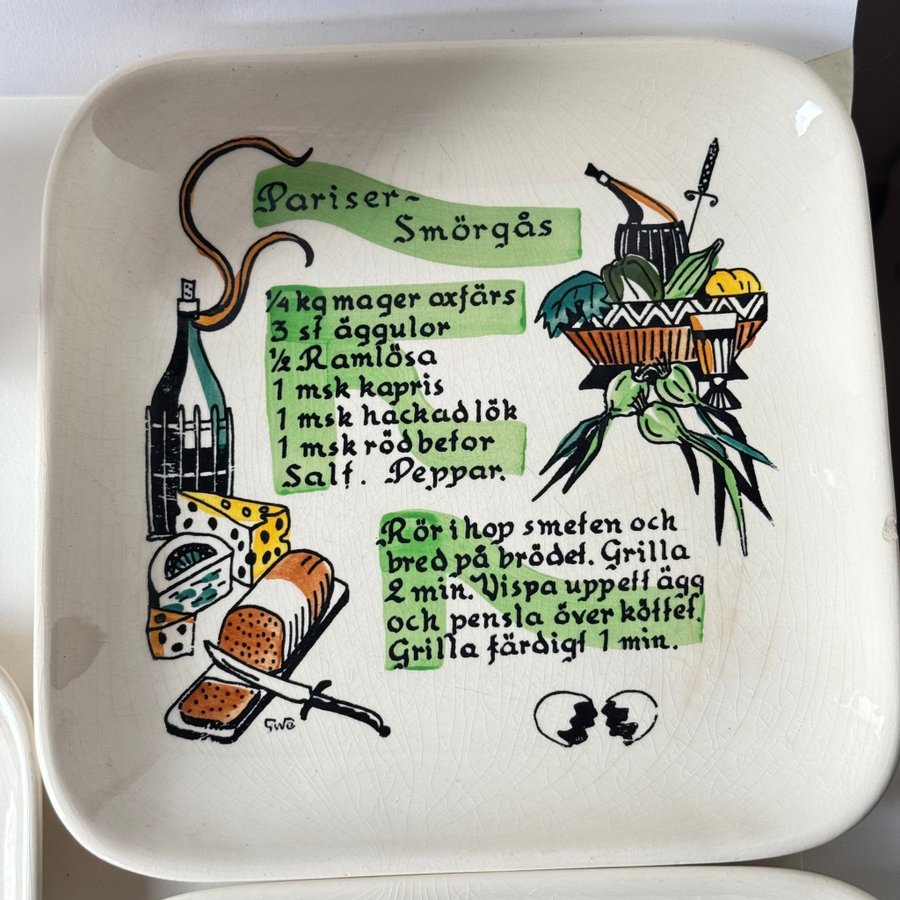 Pariser-
Smörgås
¼ kg mager oxfärs
3 st äggulor
½ Ramlösa
1 msk kapris
1 msk hackad lök
1 msk rödbetor
Salt. Peppar.
Rör i hop smeten och
bred på brödet. Grilla
2 min. Vispa upp ett ägg
och pensla över köttet.
Grilla färdigt 1 min.